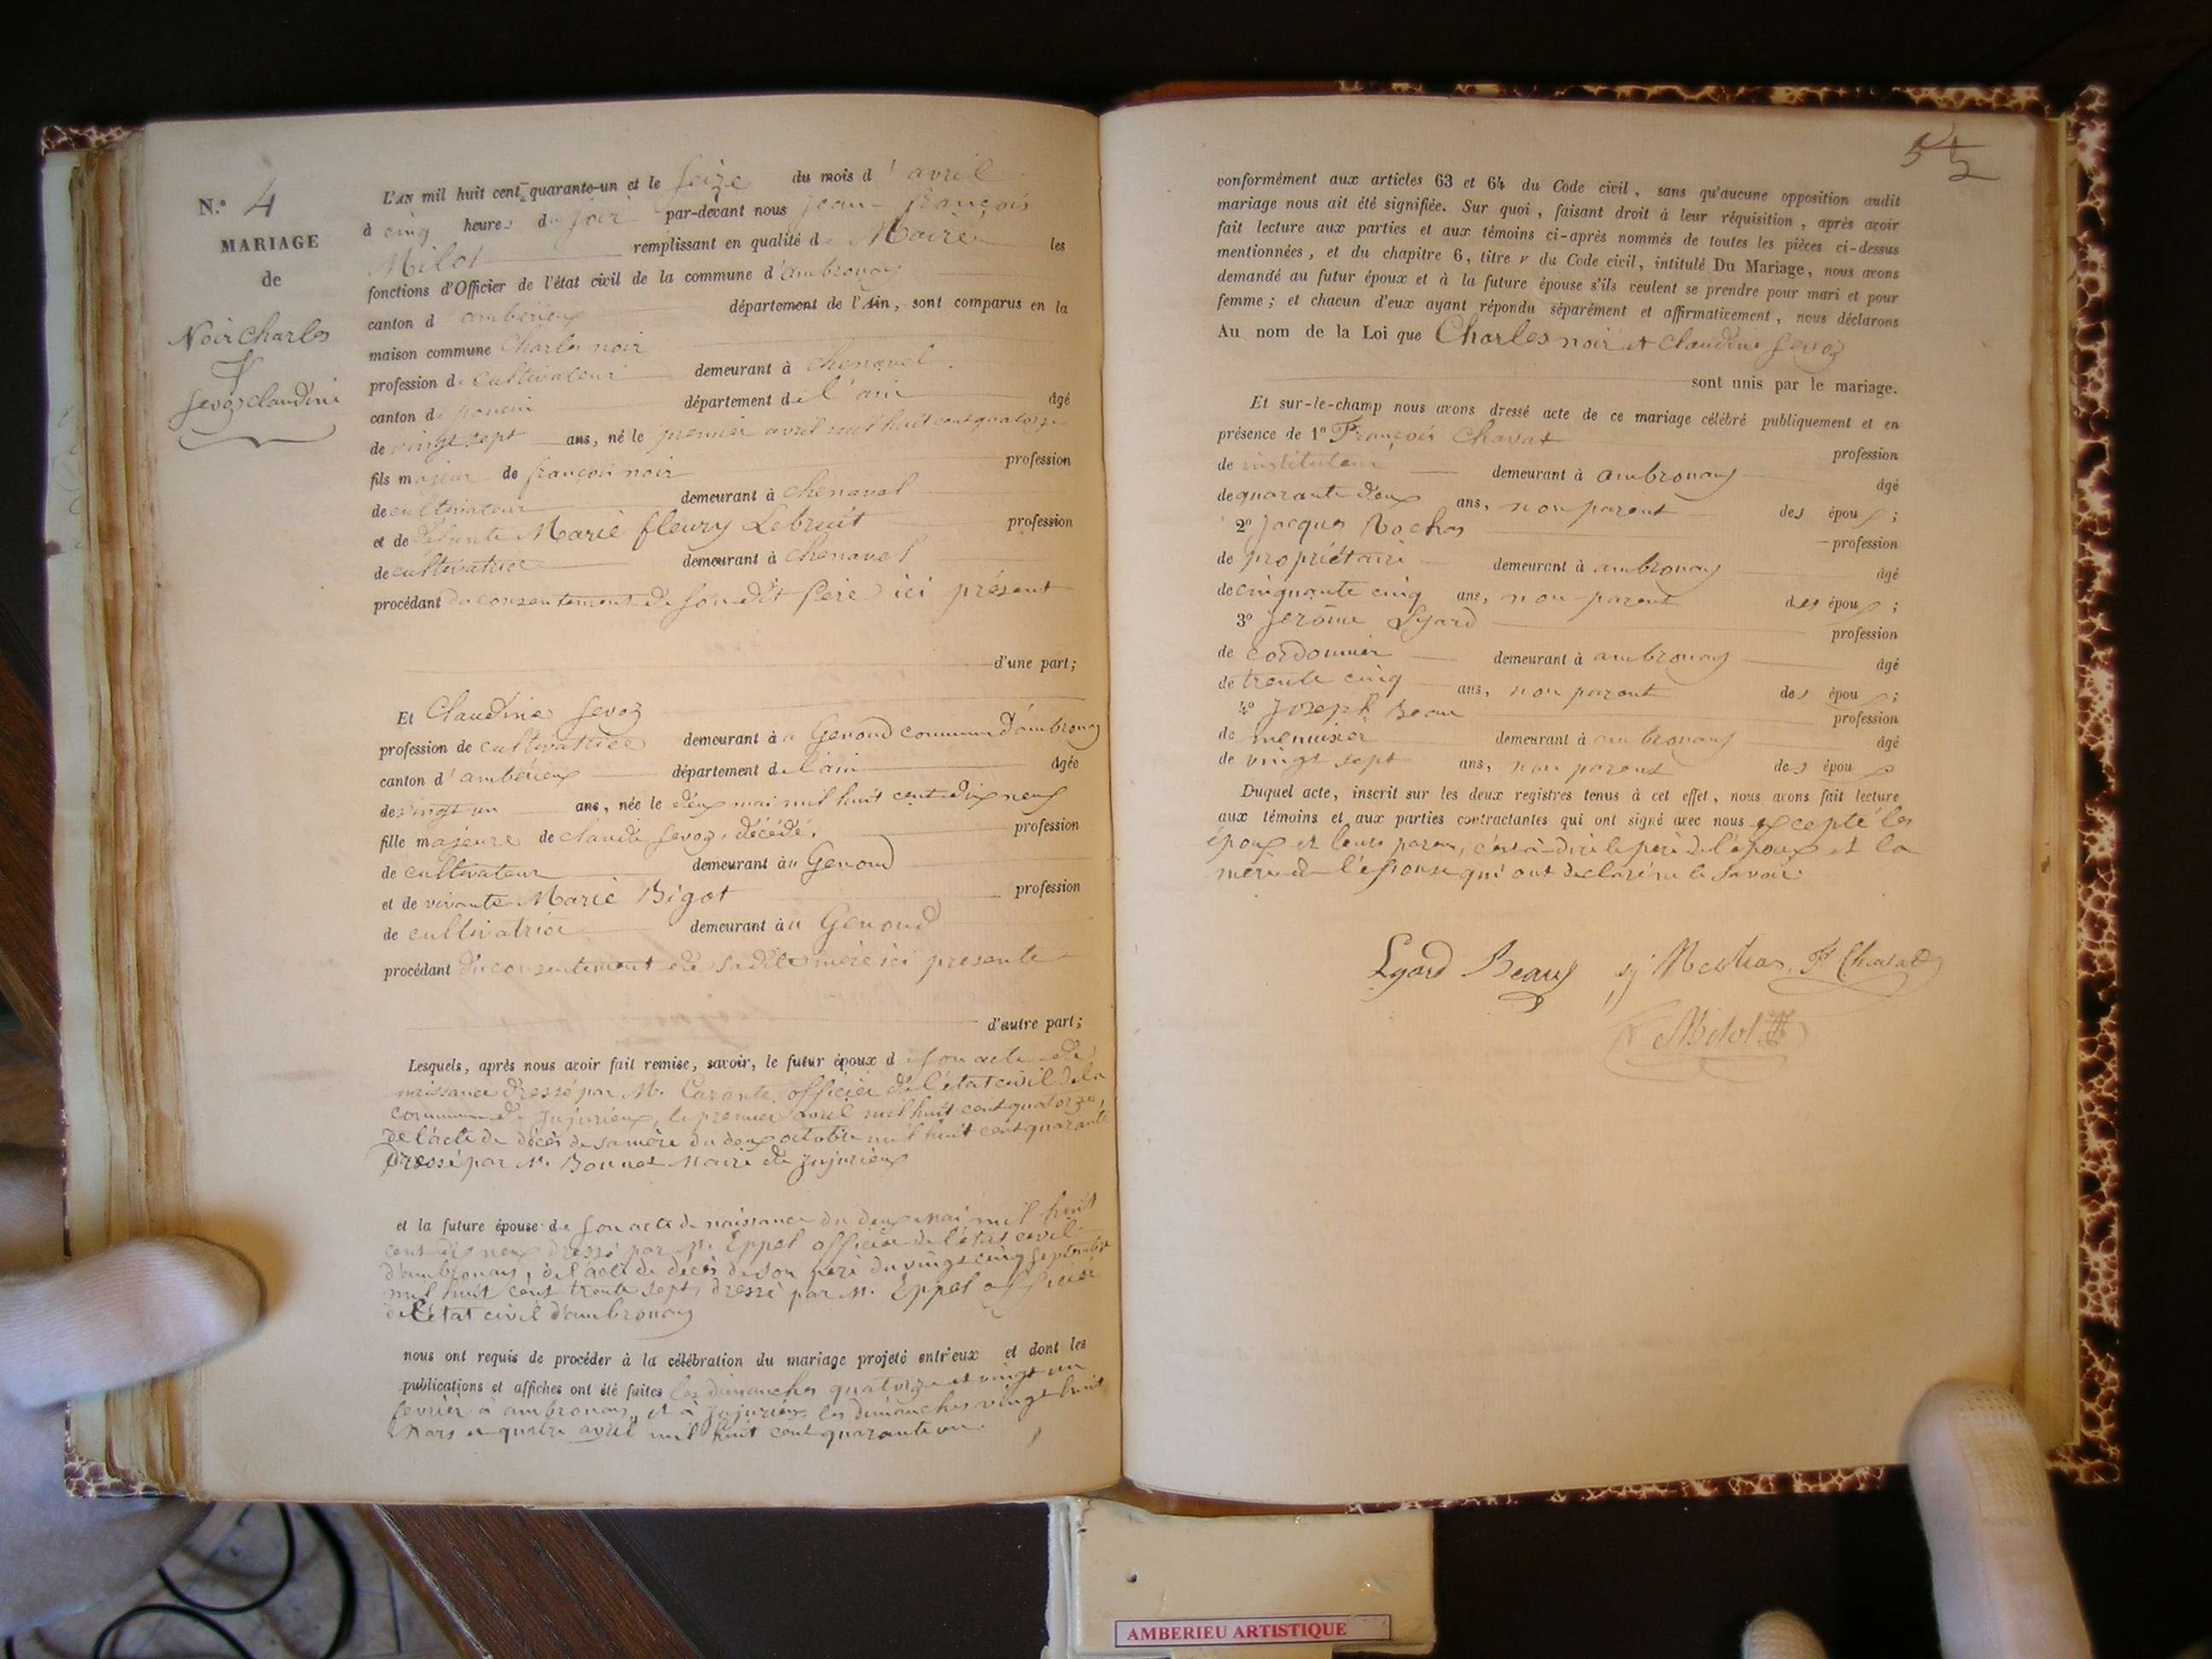 N.º 4
MARIAGE
de
Noir Charles
&
Sevoz claudine
L'AN mil huit cent quarante-un et le seize du mois d'avril
à cinq heures du soir par-devant nous jean-françois
Milot remplissant en qualité de Maire les
fonctions d'Officier de l'état civil de la commune d'ambronay
canton d'ambérieux département de l'Ain, sont comparus en la
maison commune Charles noir
profession de cultivateur demeurant à chenavel
canton de poncin département de l'ain âgé
de vingt sept ans, né le premier avril mil huit cent quatorze
fils majeur de françois noir profession
de cultivateur demeurant à chenavel
et de défunte Marie fleury Lebruit profession
de cultivatrice demeurant à chenavel
procédant du consentement de son dit père ici présent
d'une part;
Et Claudine Sevoz
profession de cultivatrice demeurant à u Genoud commune d'ambronay
canton d'ambérieux département de l'ain âgée
de vingt un ans, née le deux mai mil huit cent dix neuf
fille majeure de claude Sevoz, décédé, profession
de cultivateur demeurant àu Genoud
et de vivante Marie Bigot profession
de cultivatrice demeurant àu Genoud
procédant du consentement de sadite mère ici présente
d'autre part;
Lesquels, après nous avoir fait remise, savoir, le futur époux de son acte de
naissance dressé par M. officier de l'état civil de la
commune de jujurieux, le premier avril mil huit cent quatorze,
de l'acte de décès de sa mère du deux octobre mil huit cent quarante
dressé par M. Bonnet Maire de jujurieux
et la future épouse de son acte de naissance du deux mai mil huit
cent dix neuf dressé par M. Eppel officier de l'état civil
d'ambronay, de l'acte de décès de son père du vingt cinq septembre
mil huit cent trente sept, dressé par M. Eppel officier
de l'état civil d'ambronay
nous ont requis de procéder à la célébration du mariage projeté entr'eux et dont les
publications et affiches ont été faites les dimanches quatorze et vingt un
fevrier à ambronay, et à jujurieux les dimanches vingt huit
Mars et quatre avril mil huit cent quarante un.
conformément aux articles 63 et 64 du Code civil, sans qu'aucune opposition audit
mariage nous ait été signifiée. Sur quoi, faisant droit à leur réquisition, après avoir
fait lecture aux parties et aux témoins ci-après nommés de toutes les pièces ci-dessus
mentionnées, et du chapitre 6, titre v du Code civil, intitulé Du Mariage, nous avons
demandé au futur époux et à la future épouse s'ils veulent se prendre pour mari et pour
femme; et chacun d'eux ayant répondu séparément et affirmativement, nous déclarons
Au nom de la Loi que Charles noir et Claudine Sevoz
sont unis par le mariage.
Et sur-le-champ nous avons dressé acte de ce mariage célébré publiquement et en
présence de 1º François Chavat profession
de instituteur demeurant à ambronay âgé
de quarante deux ans, non parent des époux;
2º Jacques Rochas profession
de propriétaire demeurant à ambronay âgé
de cinquante cinq ans, non parent des époux;
3º Jerôme Lyard profession
de cordonnier demeurant à ambronay âgé
de trente cinq ans, non parent des époux;
4º Joseph Beau profession
de menuisier demeurant à ambronay âgé
de vingt sept ans, non parent des époux
Duquel acte, inscrit sur les deux registres tenus à cet effet, nous avons fait lecture
aux témoins et aux parties contractantes qui ont signé avec nous excepté les
époux et leurs parens, c'est-à-dire le père de l'époux et la
mère de l'épouse qui ont déclaré ne le savoir.
Lyard Beau F Chavat
Milot
AMBERIEU ARTISTIQUE